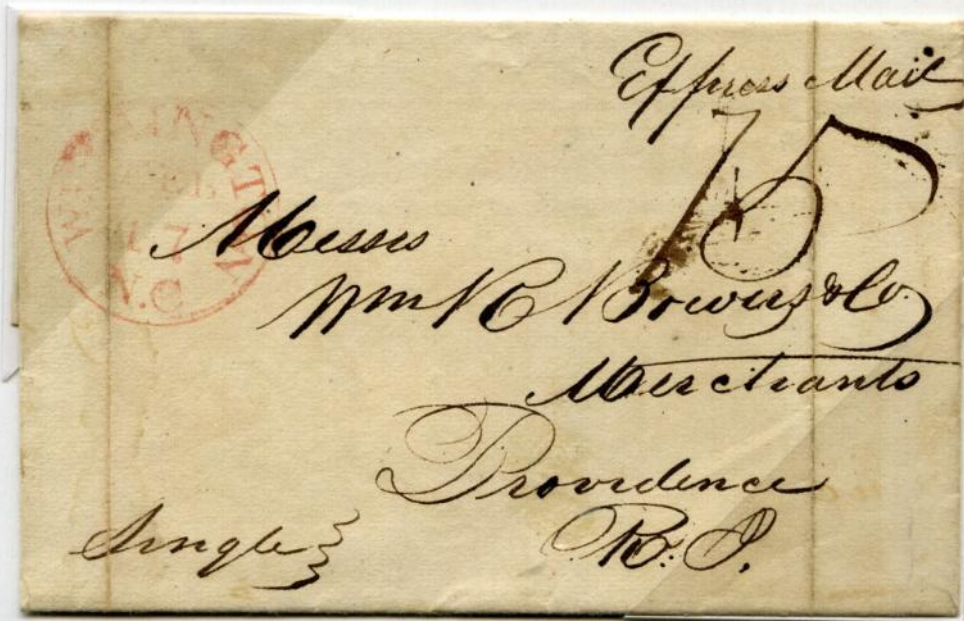 Express Mail
75
WILMINGTON
FEB
17
N.C.
Messrs
Wm R Bowers & Co.
Merchants
Providence
R. I.
Single